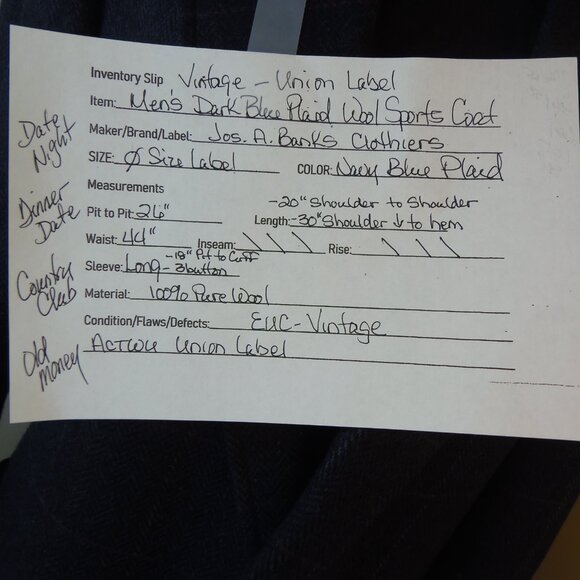 Inventory Slip Vintage - Union Label
Item: Men's Dark Blue Plaid Wool Sports Coat
Maker/Brand/Label: Jos. A. Banks Clothiers
SIZE: Ø Size Label COLOR: Navy Blue Plaid
Measurements
-20" Shoulder to Shoulder
Pit to Pit: 26" Length: -30" Shoulder ↓ to hem
Waist: 44" Inseam: \ \ \ Rise: \ \ \
-18" Pit to Cuff
Sleeve: Long - 3button
Material: 100% Pure Wool
Condition/Flaws/Defects: EUC-Vintage
ACTWU Union Label
Date
Night
Dinner
Date
Country
Club
Old
money